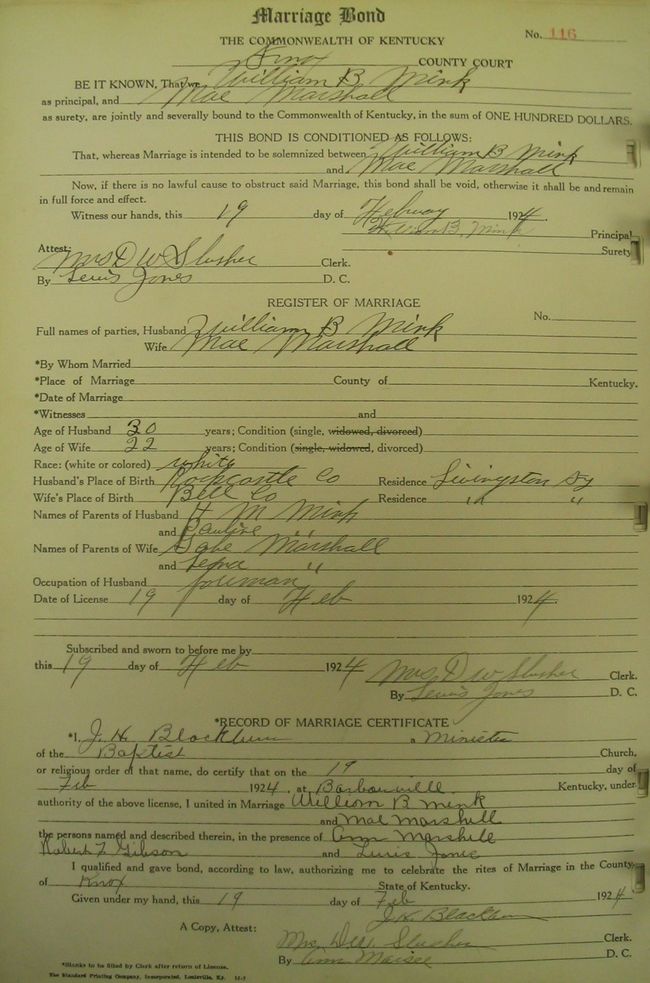 Marriage Bond
No. 116
THE COMMONWEALTH OF KENTUCKY
Knox COUNTY COURT
BE IT KNOWN, That we William B Mink
as principal, and Mae Marshall
as surety, are jointly and severally bound to the Commonwealth of Kentucky, in the sum of ONE HUNDRED DOLLARS.
THIS BOND IS CONDITIONED AS FOLLOWS:
That, whereas Marriage is intended to be solemnized between William B Mink
and Mae Marshall
Now, if there is no lawful cause to obstruct said Marriage, this bond shall be void, otherwise it shall be and remain
in full force and effect.
Witness our hands, this 19 day of 1924.
William B. Mink Principal
Surety
Attest:
Mrs D W Slusher Clerk.
By Lewis Jones D. C.
REGISTER OF MARRIAGE
No.
Full names of parties, Husband William B Mink
Wife Mae Marshall
*By Whom Married
*Place of Marriage County of Kentucky.
*Date of Marriage
*Witnesses and
Age of Husband 30 years; Condition (single, widowed, divorced)
Age of Wife 22 years; Condition (single, widowed, divorced)
Race: (white or colored) white
Husband's Place of Birth Rockcastle Co Residence Livingston Ky
Wife's Place of Birth Bell Co Residence " "
Names of Parents of Husband H M Mink
and Pauline "
Names of Parents of Wife Gabe Marshall
and "
Occupation of Husband
Date of License 19 day of Feb 1924.
Subscribed and sworn to before me by
this 19 day of Feb 1924 Mrs D W Slusher Clerk.
By Lewis Jones D. C.
*RECORD OF MARRIAGE CERTIFICATE
*I, J. H. Blackburn a Minister
of the Baptist Church,
or religious order of that name, do certify that on the 19 day of
Feb 1924, at Barbourville. Kentucky, under
authority of the above license, I united in Marriage William B Mink
and Mae Marshall
the persons named and described therein, in the presence of Ann Marshall
Robert Gibson and Lewis Jones
I qualified and gave bond, according to law, authorizing me to celebrate the rites of Marriage in the County
of Knox State of Kentucky.
Given under my hand, this 19 day of Feb 1924
J. H. Blackburn
A Copy, Attest:
Mrs. D. W. Slusher Clerk.
By Ann D. C.
*Blanks to be filled by Clerk after return of License.
The Standard Printing Company, Incorporated, Louisville, Ky.